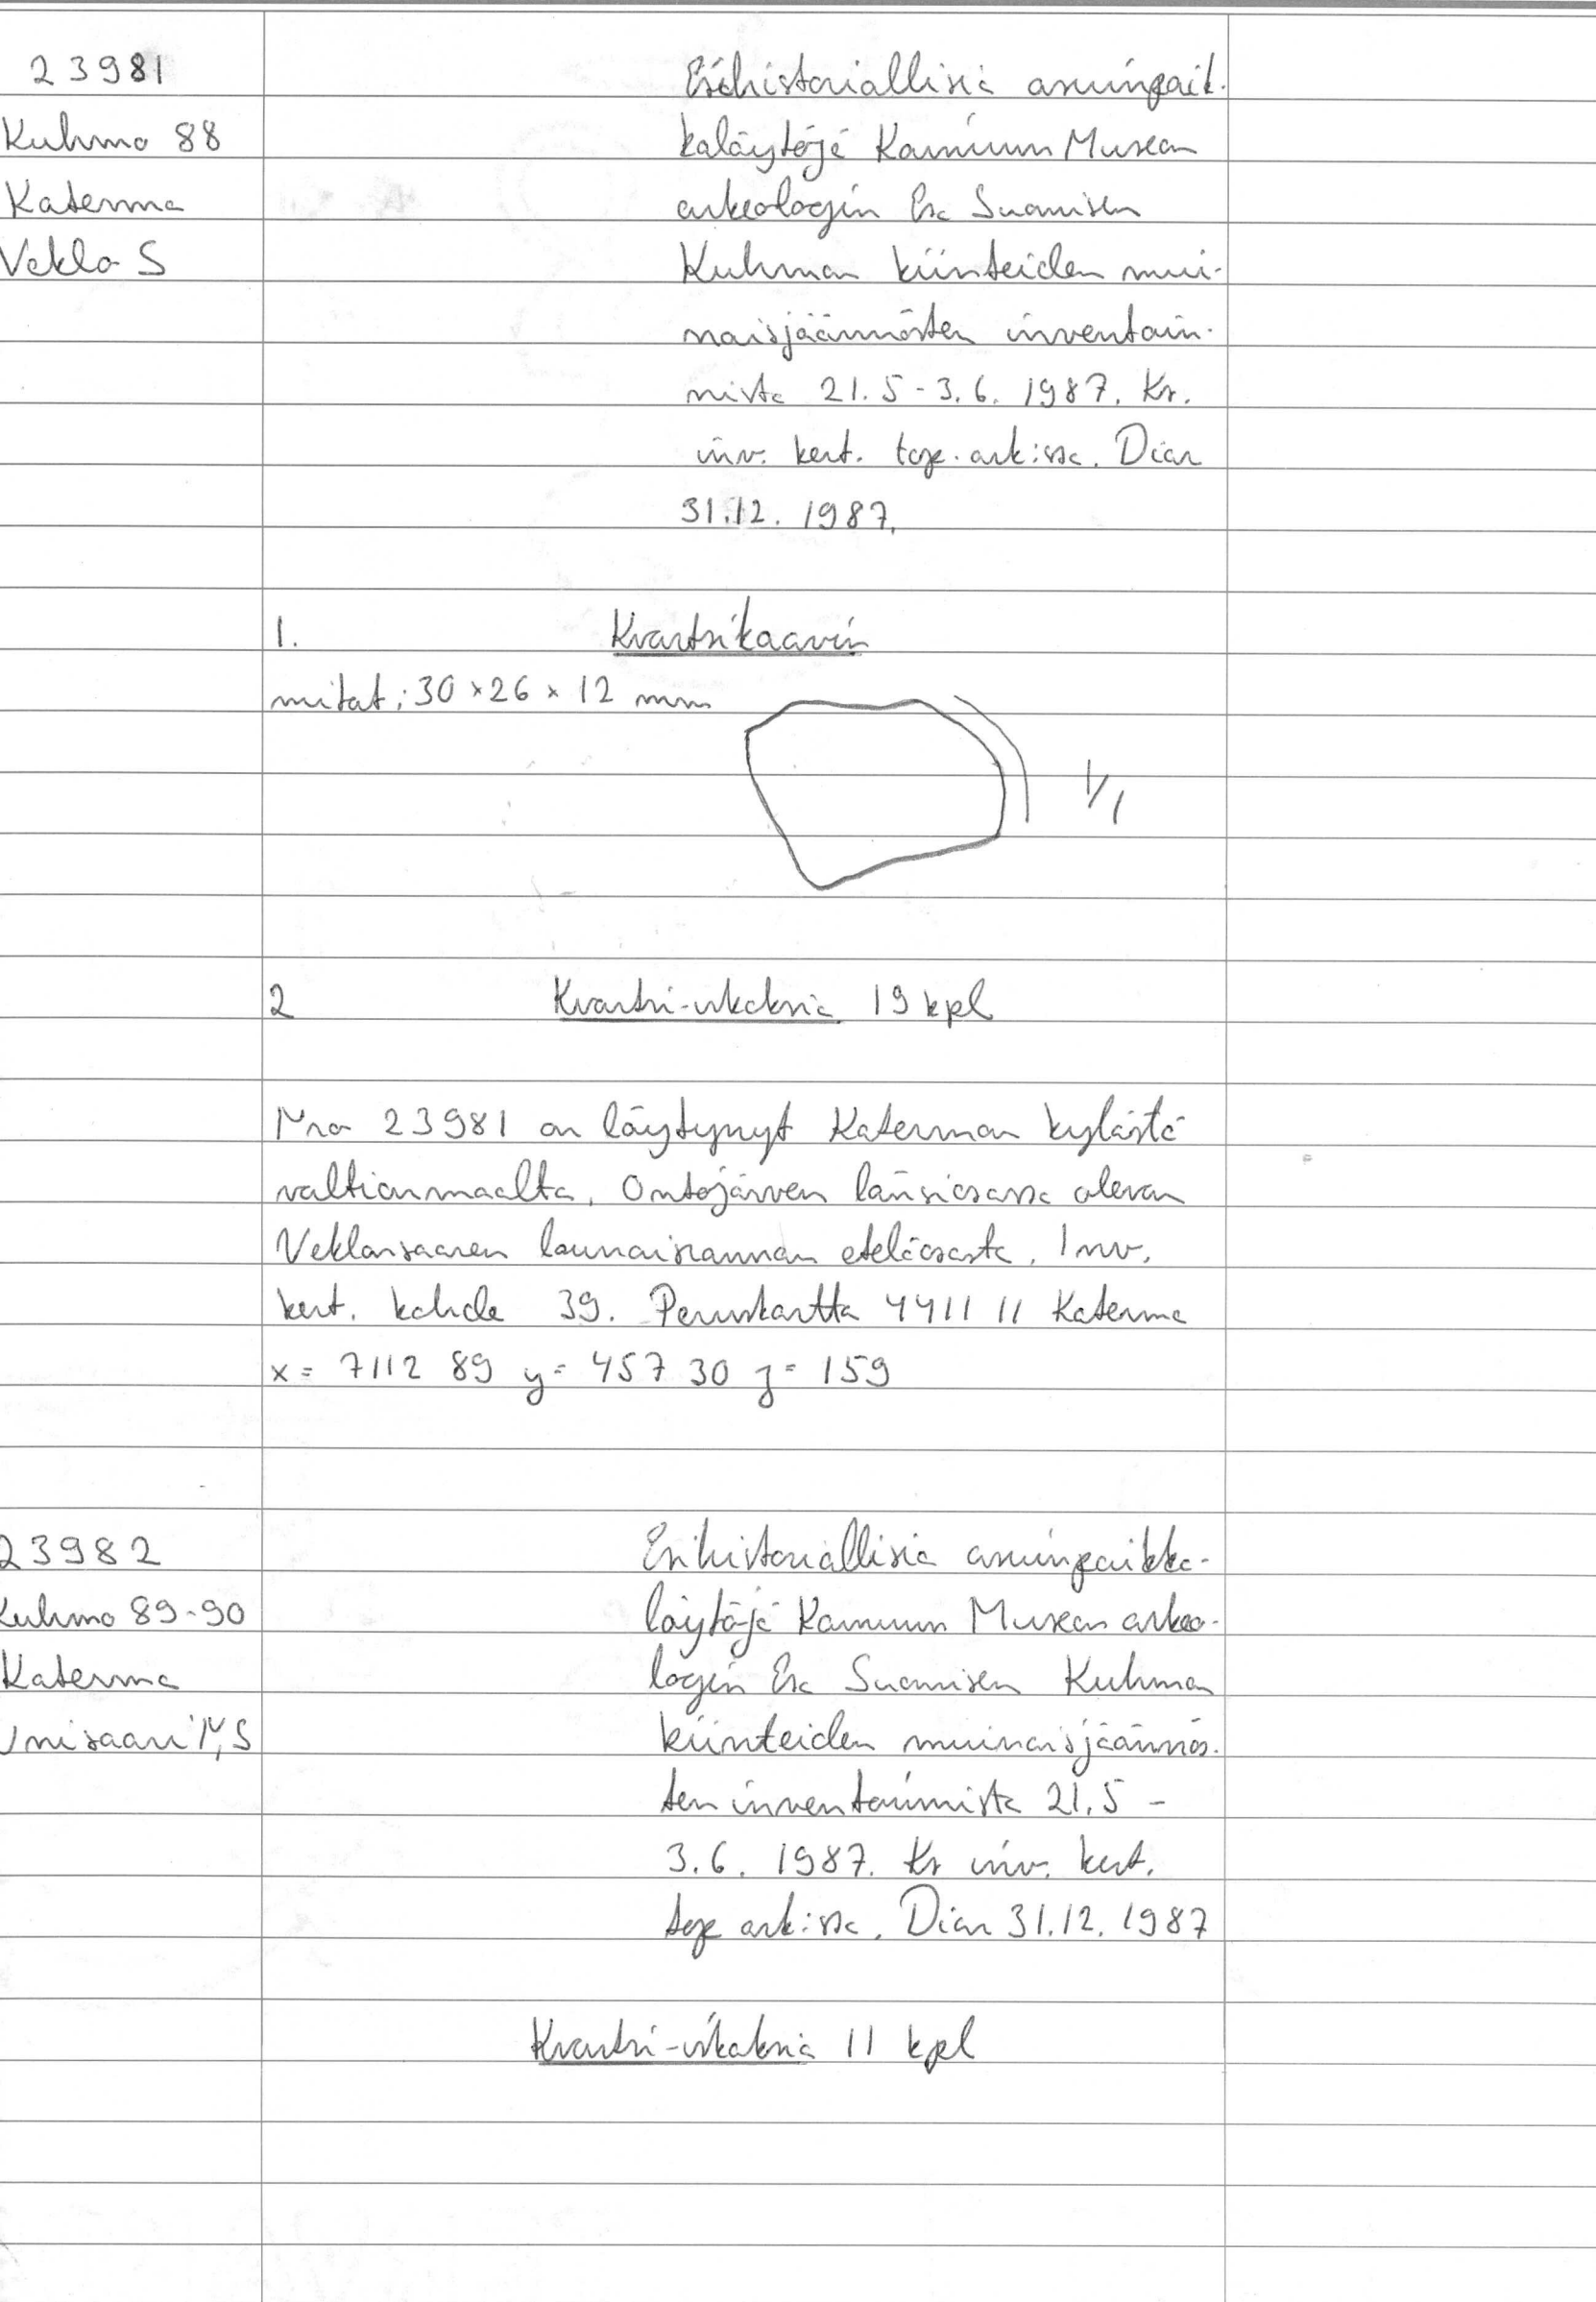 23981
Kuhmo 88
Katerma
Vekla S
Esihistoriallisia asuinpaik-
kalöytöjä Kainuun Museon
arkeologin Esa Suomisen
Kuhmon kiinteiden mui-
naisjäännösten inventoin-
nista 21.5-3.6. 1987. Kr.
inv. kert. top. ark:ssa. Diar
31.12. 1987.
1. Kvartsikaavin
mitat: 30 x 26 x 12 mm
1/1
2 Kvartsi-iskoksia 19 kpl
Nro 23981 on löytynyt Katerman kylästä
valtionmaalta, Ontojärven länsiosassa olevan
Veklansaaren lounaisrannan eteläosasta. Inv.
kert. kohde 39. Peruskartta 4411 11 Katerma
x = 7112 89 y = 457 30 z = 159
23982
Kuhmo 89-90
Katerma
Unisaari N, S
Esihistoriallisia asuinpaikka-
löytöjä Kainuun Museon arkeo-
login Esa Suomisen Kuhmon
kiinteiden muinaisjäännös-
ten inventoinnista 21.5 -
3.6. 1987. Kr inv. kert.
top ark:ssa. Diar 31.12. 1987
Kvartsi-iskoksia 11 kpl